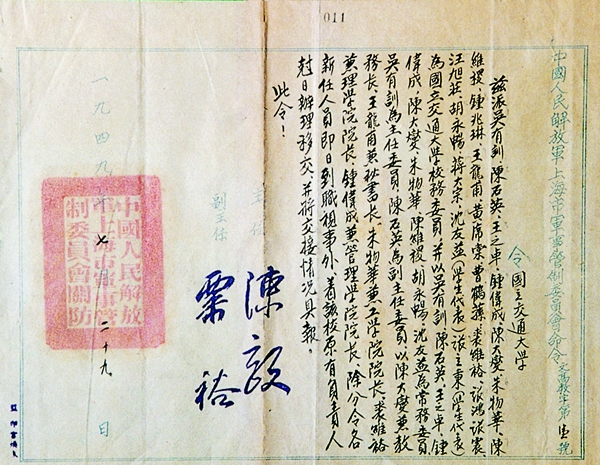 011
中國人民解放軍上海市軍事管制委員會命令 文高教字第 壹 號
令國立交通大學
茲派吳有訓、陳石英、王之卓、鍾偉成、陳大燮、朱物華、陳
維稷、鍾兆琳、王龍甫、黄席棠、曹鶴蓀、裘維裕、張鴻、張震、
汪旭莊、胡永暢、蔣大宗、沈友益（學生代表）、張立秉（學生代表）
為國立交通大學校務委員，並以吳有訓、陳石英、王之卓、鍾
偉成、陳大燮、朱物華、陳維稷、胡永暢、沈友益為常務委員
吳有訓為主任委員，陳石英為副主任委員，以陳大燮兼教
務長，王龍甫兼秘書長，朱物華兼工學院院長，裘維裕
兼理學院院長，鍾偉成兼管理學院院長，除分令各
新任人員即日到職視事外，着該校原有負責人
尅日辦理移交，并將交接情况具報。
此令！
主任 陳毅
副主任 粟裕
一九四九年 七 月 二十九 日
中國人民解放
軍上海市軍事管
制委員會關防